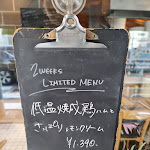 2WEEKS
LIMITED MENU
低温焼成鶏ハムと
レモンクリーム
¥1,390.